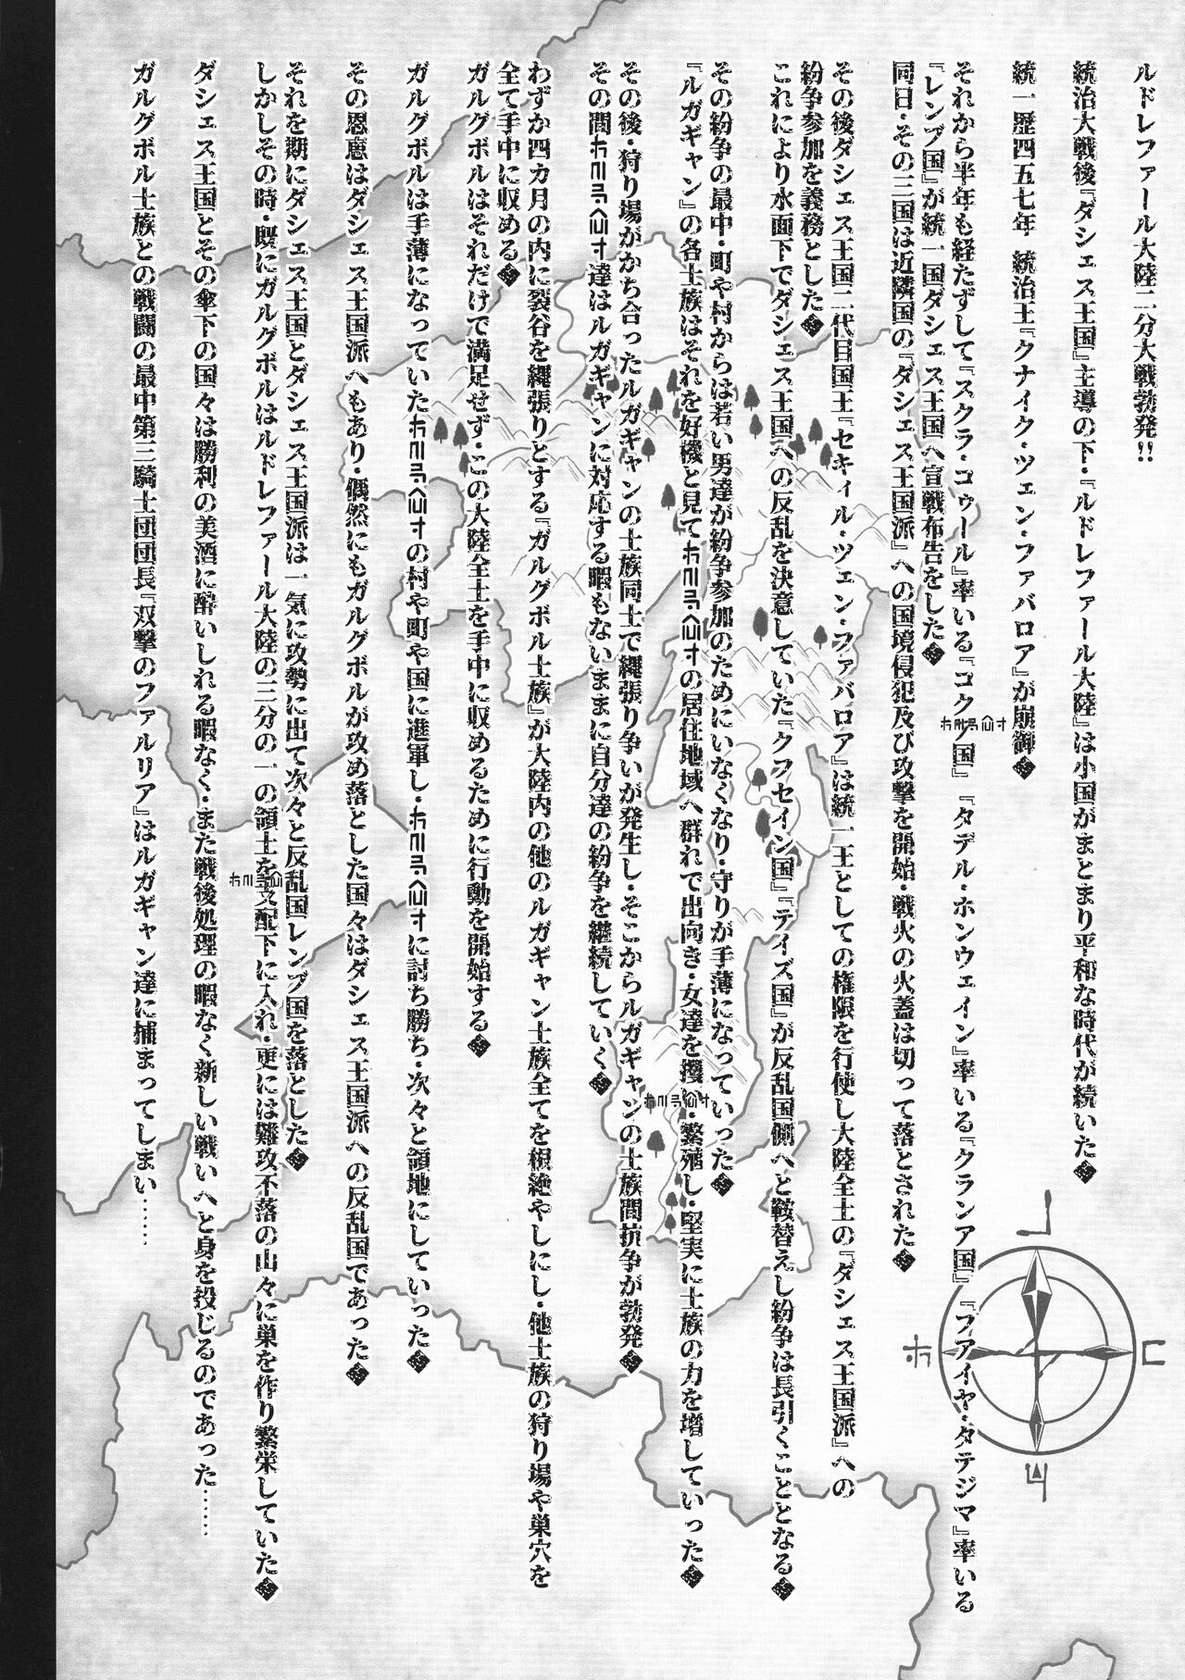 ルドレファール大陸二分大戦勃発!!
統治大戦後『ダシェス王国』主導の下・『ルドレファール大陸』は小国がまとまり平和な時代が続いた◆
統一歴四五七年 統治王『クナイク・ツェン・ファバロア』が崩御◆
それから半年も経たずして『スクラ・ゴゥール』率いる『コクア国』『タデル・ホンウェイン』率いる『クランア国』『ブアイヤ・タテジマ』率いる
『レンブ国』が統一国ダシェス王国へ宣戦布告をした◆
同日・その三国は近隣国の『ダシェス王国派』への国境侵犯及び攻撃を開始・戦火の火蓋は切って落とされた◆
その後ダシェス王国二代目国王『セキィル・ツェン・ファバロア』は統一王としての権限を行使し大陸全土の『ダシェス王国派』への
紛争参加を義務とした◆
これにより水面下でダシェス王国への反乱を決意していた『クフセイン国』『テイズ国』が反乱国側へと鞍替えし紛争は長引くこととなる◆
その紛争の最中・町や村からは若い男達が紛争参加のためにいなくなり・守りが手薄になっていった◆
『ルガギャン』の各士族はそれを好機と見て の居住地域へ群れで出向き・女達を攫い・繁殖し・堅実に士族の力を増していった◆
その後・狩り場がかち合ったルガギャンの士族同士で縄張り争いが発生し・そこからルガギャンの士族間抗争が勃発◆
その間 達はルガギャンに対応する暇もないままに自分達の紛争を継続していく◆
わずか四カ月の内に裂谷を縄張りとする『ガルグボル士族』が大陸内の他のルガギャン士族全てを根絶やしにし・他士族の狩り場や巣穴を
全て手中に収める◆
ガルグボルはそれだけで満足せず・この大陸全土を手中に収めるために行動を開始する◆
ガルグボルは手薄になっていた の村や町や国に進軍し・ に討ち勝ち・次々と領地にしていった◆
その恩恵はダシェス王国派へもあり・偶然にもガルグボルが攻め落とした国々はダシェス王国派への反乱国であった◆
それを期にダシェス王国とダシェス王国派は一気に攻勢に出て次々と反乱国レンブ国を落とした◆
しかしその時・既にガルグボルはルドレファール大陸の三分の一の領土を支配下に入れ・更には難攻不落の山々に巣を作り繁栄していた◆
ダシェス王国とその傘下の国々は勝利の美酒に酔いしれる暇なく・また戦後処理の暇なく新しい戦いへと身を投じるのであった……
ガルグボル士族との戦闘の最中第三騎士団団長『双撃のファルリア』はルガギャン達に捕まってしまい……